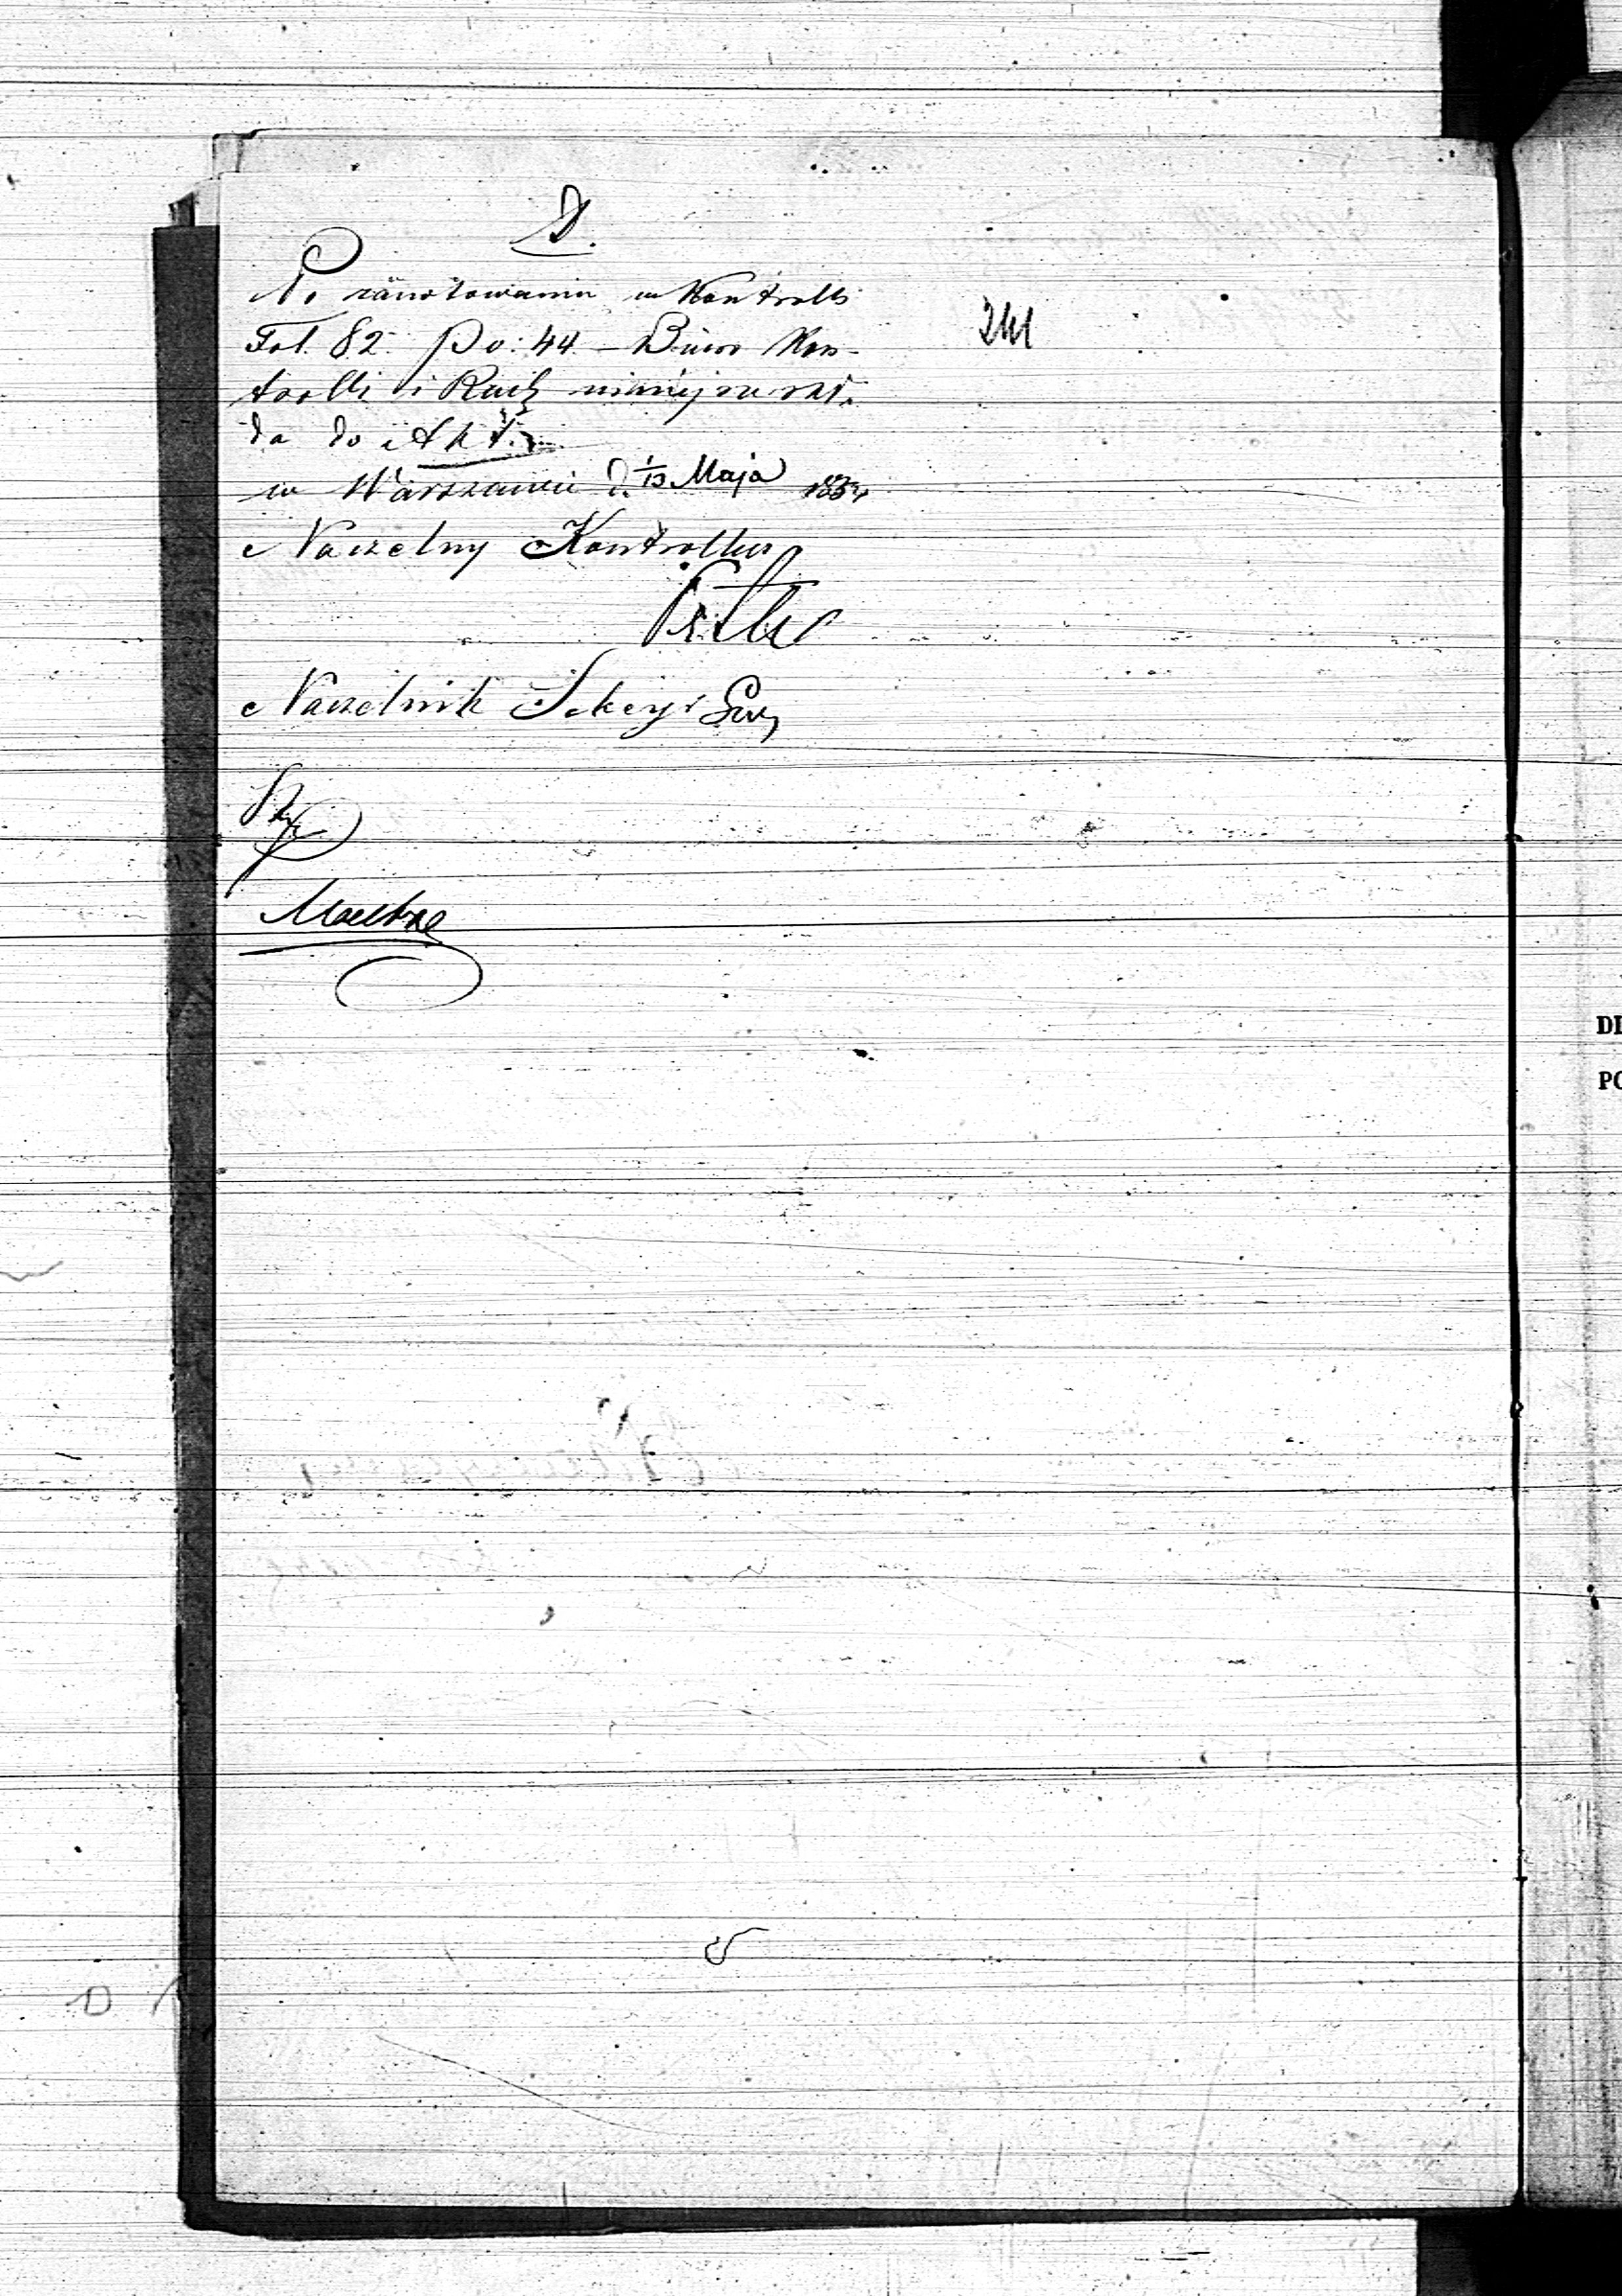 D.
Po zanotowaniu w Kontrolli
Fol. 82. Po: 44. — Biuro Kon-
trolli i Rach niniejsze skł.
da do Akt.
w Warszawie d. 1/13 Maja 1854
Naczelny Kontroller
Naczelnik Sekcyi
241
DI
PO